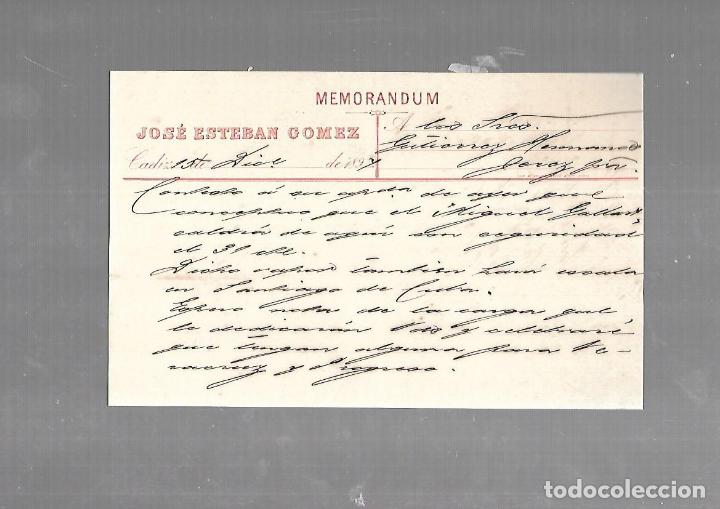 MEMORANDUM
JOSÉ ESTEBAN GOMEZ
Cadiz 15 de Dice de 1897
A los Sres.
Gutierrez Hermanos
Jerez fra.
Contesto á su apda. de ayer que
conceptuo que el Miguel Gallart
saldrá de aquí con seguridad
el 31 del.
Dicho vapor tambien hará escala
en Santiago de Cuba.
Espero nota de la carga que
le dedicarán Vds y celebraré
que tengan alguna para Ve-
racruz y Progreso.
todocoleccion.net